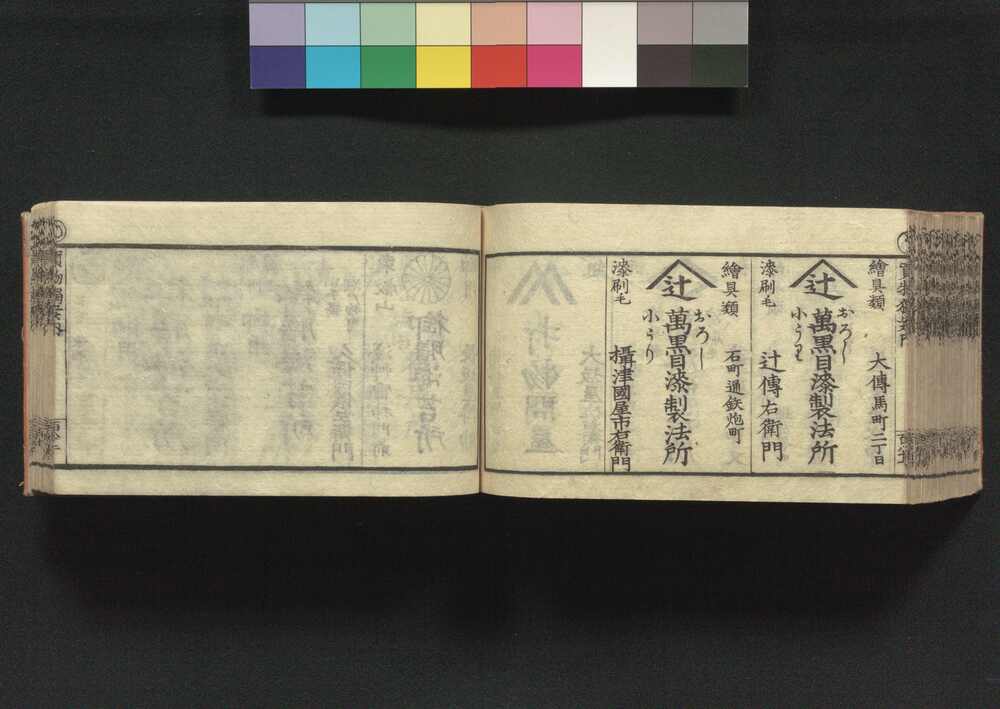 繪具類
大傳馬町二丁目
辻
おろし
萬黒目漆製法所
小うり
漆刷毛
辻傳右衛門
繪具類
石町通鉄炮町
辻
おろし
萬黒目漆製法所
小うり
漆刷毛
攝津國屋市右衛門